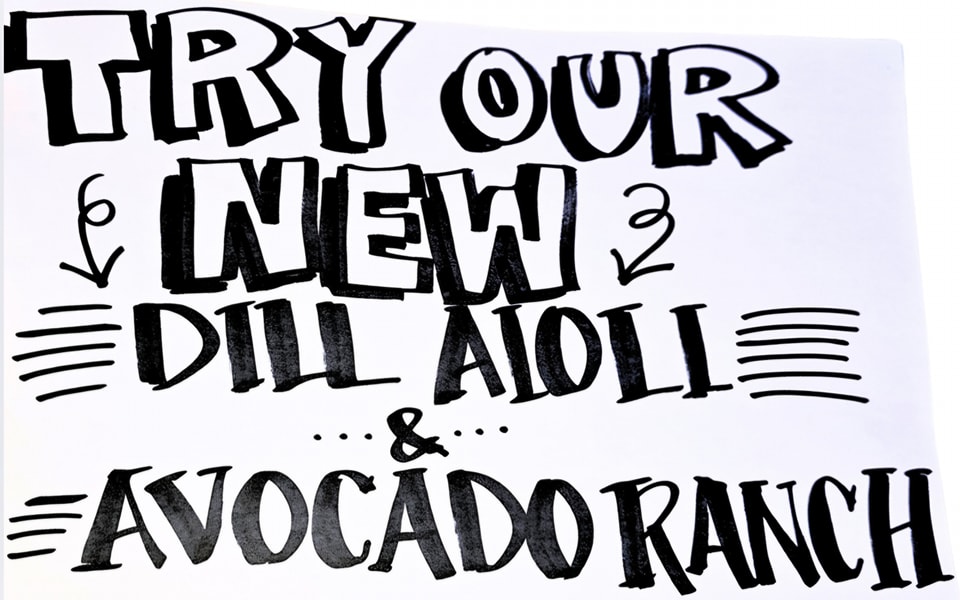 TRY OUR
NEW
DILL AIOLI
&
AVOCADO RANCH